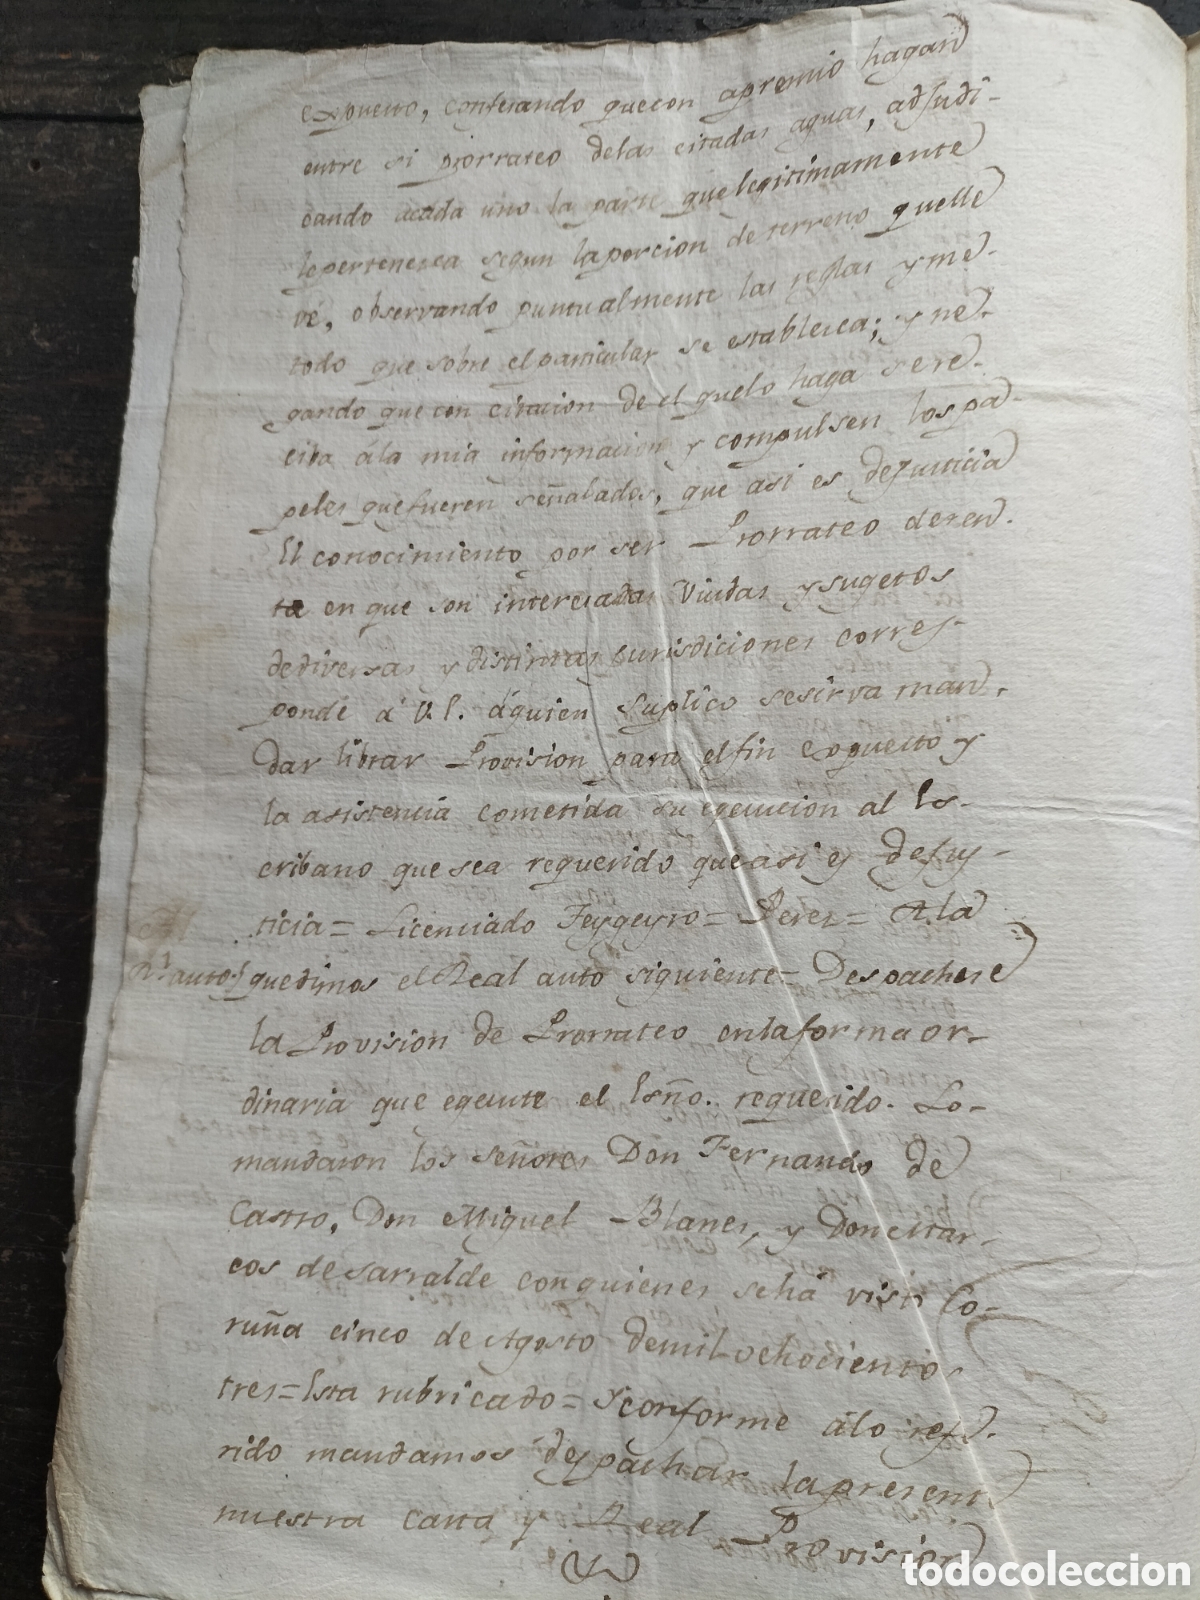 expuesto, confesando quecon apremio hagan
entre si prorrateo delas citadas aguas, adjudi-
cando acada uno la parte quelegitimamente
lepertenesca segun laporcion de terreno quelle
ve, observando puntualmente las reglas y me-
todo que sobre elparticular se establesca; y ne-
gando que con citacion de el quelo haga sere-
ciba âla mia informacion y compulsen los pa-
peles quefueren señalados, que asi es deJusticia
El conocimiento por ser Prorrateo deren-
ta en que son interesadas Viudas ysugetos
dediversas y distintas Jurisdiciones corres-
ponde â V.E. âquien suplico sesirva man-
dar librar Provision para elfin expuesto y
la asistencia cometida su egecucion al Es-
cribano que sea requerido queasi es deJus-
ticia = Licenciado Feygeyro = Perez = A la
Rl. auto} quedimos el Real auto siguiente = Despachese
la Provision de Prorrateo enlaforma or-
dinaria que egecute el Esño. requerido. Lo-
mandaron los señores Don Fernando de
Castro, Don Miguel Blanes, y Don Mar-
cos de Sarralde conquienes sehâ visto Co-
ruña cinco de Agosto demil ochocientos
tres = Esta rubricado = Yconforme âlo refe-
rido mandamos despachar lapresente
nuestra carta y Real Provision
todocoleccion